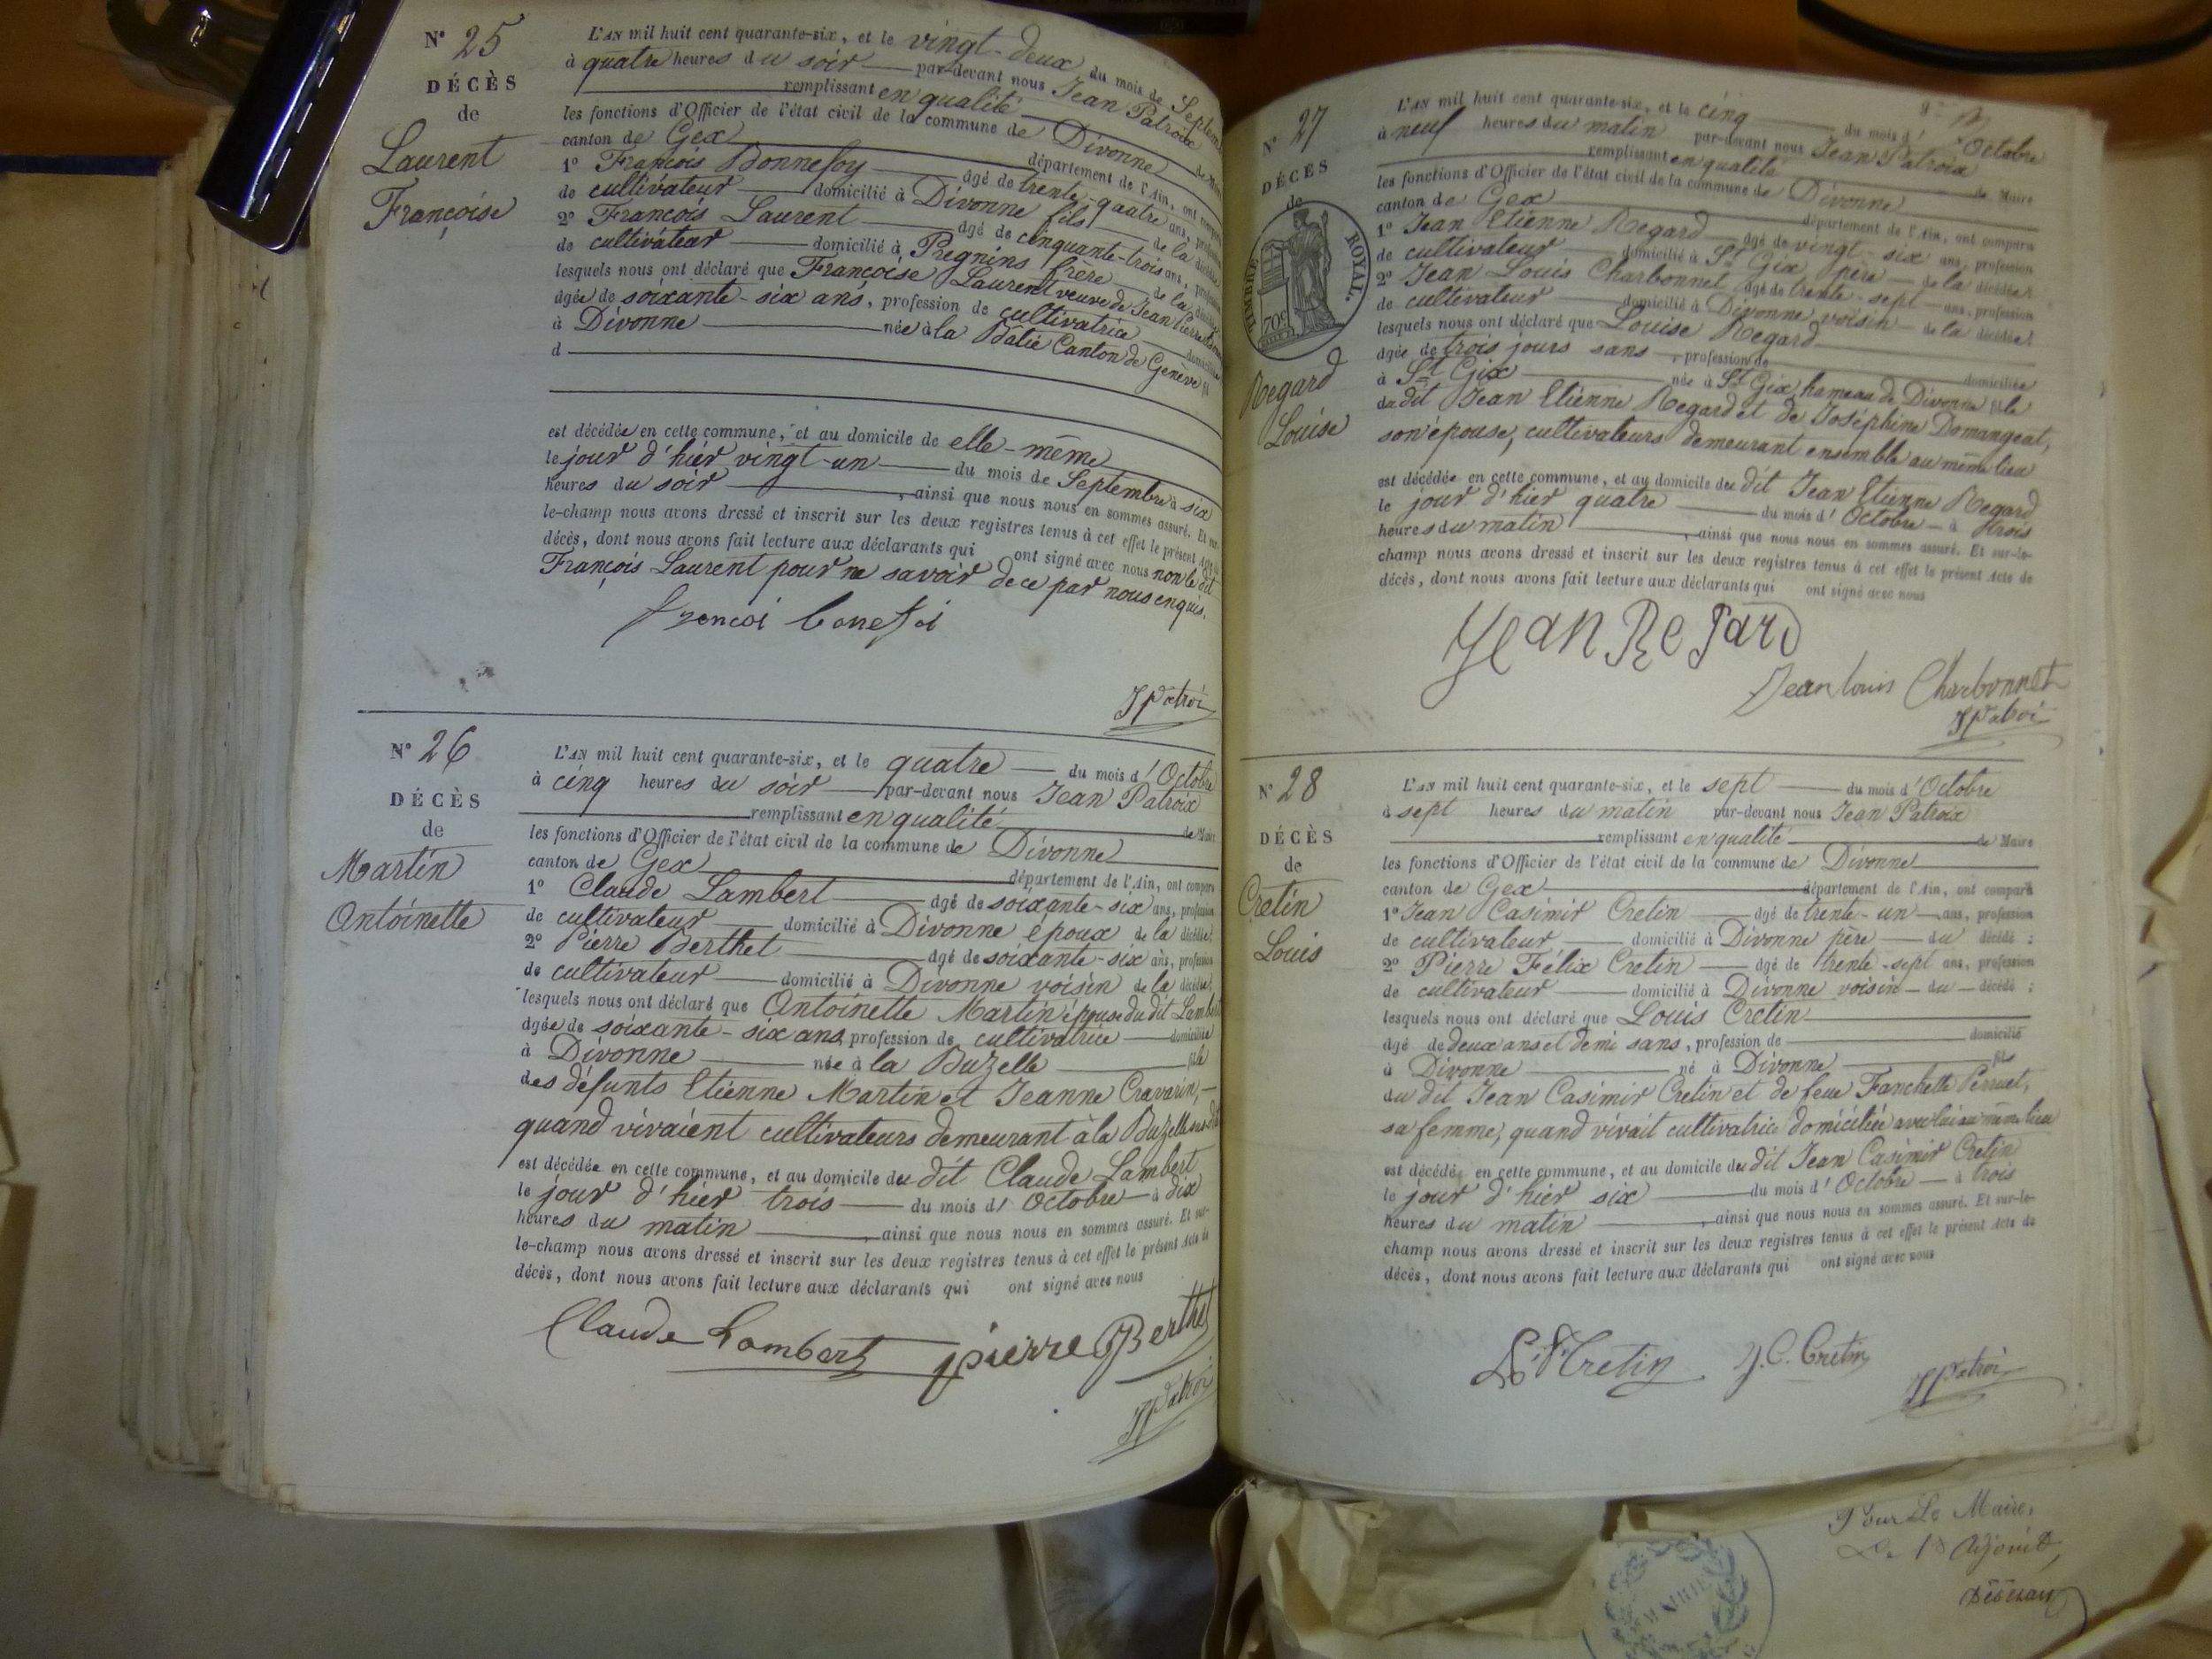 N° 25
DÉCÈS
de
Laurent
Françoise
L'AN mil huit cent quarante-six, et le vingt-deux du mois de Septem
à quatre heures du soir par-devant nous Jean Patroix
remplissant en qualité de Maire
les fonctions d'Officier de l'état civil de la commune de Divonne
canton de Gex département de l'Ain, ont compar
1° François Bonnefoy âgé de trente-quatre ans, profess
de cultivateur domicilié à Divonne fils de la décédée
2° François Laurent âgé de cinquante-trois ans, profess
de cultivateur domicilié à Pregnins frère de la décédée
lesquels nous ont déclaré que Françoise Laurent veuve de Jean Pierre
âgée de soixante-six ans, profession de cultivatrice domiciliée
à Divonne née à la Batie Canton de Genève fil
d
est décédée en cette commune, et au domicile de elle-même
le jour d'hier vingt-un du mois de Septembre à six
heures du soir, ainsi que nous nous en sommes assuré. Et sur-
le-champ nous avons dressé et inscrit sur les deux registres tenus à cet effet le présent Acte de
décès, dont nous avons fait lecture aux déclarants qui ont signé avec nous non le dit
François Laurent pour ne savoir de ce par nous enquis.
francoi bonefoi
JPatroi
N° 26
DÉCÈS
de
Martin
Antoinette
L'AN mil huit cent quarante-six, et le quatre du mois d'Octobre
à cinq heures du soir par-devant nous Jean Patroix
remplissant en qualité de Maire
les fonctions d'Officier de l'état civil de la commune de Divonne
canton de Gex département de l'Ain, ont comparu
1° Claude Lambert âgé de soixante-six ans, profession
de cultivateur domicilié à Divonne époux de la décédée;
2° Pierre Berthet âgé de soixante-six ans, profession
de cultivateur domicilié à Divonne voisin de la décédée;
lesquels nous ont déclaré que Antoinette Martin épouse du dit Lambert
âgée de soixante-six ans, profession de cultivatrice domiciliée
à Divonne née à la Buzelle fille
des défunts Etienne Martin et Jeanne Cravarin,
quand vivaient cultivateurs demeurant à la Buzelle
est décédée en cette commune, et au domicile du dit Claude Lambert
le jour d'hier trois du mois d'Octobre à dix
heures du matin, ainsi que nous nous en sommes assuré. Et sur-
le-champ nous avons dressé et inscrit sur les deux registres tenus à cet effet le présent Acte de
décès, dont nous avons fait lecture aux déclarants qui ont signé avec nous
Claude Lambert pierre Berthet
JPatroi
N° 27
DÉCÈS
de
TIMBRE ROYAL.
70c
Regard
Louise
L'AN mil huit cent quarante-six, et le cinq du mois d'Octobre
à neuf heures du matin par-devant nous Jean Patroix
remplissant en qualité de Maire
les fonctions d'Officier de l'état civil de la commune de Divonne
canton de Gex département de l'Ain, ont comparu
1° Jean Etienne Regard âgé de vingt-six ans, profession
de cultivateur domicilié à St Gix père de la décédée;
2° Jean Louis Charbonnet âgé de trente-sept ans, profession
de cultivateur domicilié à Divonne voisin de la décédée;
lesquels nous ont déclaré que Louise Regard
âgée de trois jours sans, profession de domiciliée
à St Gix née à St Gix hameau de Divonne fille
du dit Jean Etienne Regard et de Joséphine Domangeat,
son épouse, cultivateurs demeurant ensemble au même lieu
est décédée en cette commune, et au domicile du dit Jean Etienne Regard
le jour d'hier quatre du mois d'Octobre à trois
heures du matin, ainsi que nous nous en sommes assuré. Et sur-le-
champ nous avons dressé et inscrit sur les deux registres tenus à cet effet le présent Acte de
décès, dont nous avons fait lecture aux déclarants qui ont signé avec nous
Jean Regard
Jean louis Charbonnet
JPatroi
N° 28
DÉCÈS
de
Cretin
Louis
L'AN mil huit cent quarante-six, et le sept du mois d'Octobre
à sept heures du matin par-devant nous Jean Patroix
remplissant en qualité de Maire
les fonctions d'Officier de l'état civil de la commune de Divonne
canton de Gex département de l'Ain, ont comparu
1° Jean Casimir Cretin âgé de trente-un ans, profession
de cultivateur domicilié à Divonne père du décédé;
2° Pierre Félix Cretin âgé de trente-sept ans, profession
de cultivateur domicilié à Divonne voisin du décédé;
lesquels nous ont déclaré que Louis Cretin
âgé de deux ans et demi sans, profession de domicilié
à Divonne né à Divonne fils
du dit Jean Casimir Cretin et de feue Fanchette Perruet,
sa femme, quand vivait cultivatrice domiciliée avec lui au même lieu
est décédé en cette commune, et au domicile du dit Jean Casimir Cretin
le jour d'hier six du mois d'Octobre à trois
heures du matin, ainsi que nous nous en sommes assuré. Et sur-le-
champ nous avons dressé et inscrit sur les deux registres tenus à cet effet le présent Acte de
décès, dont nous avons fait lecture aux déclarants qui ont signé avec nous
Cretin J.C. Cretin
JPatroi
Pour Le Maire,
Le 1er Adjoint,
MAIRIE